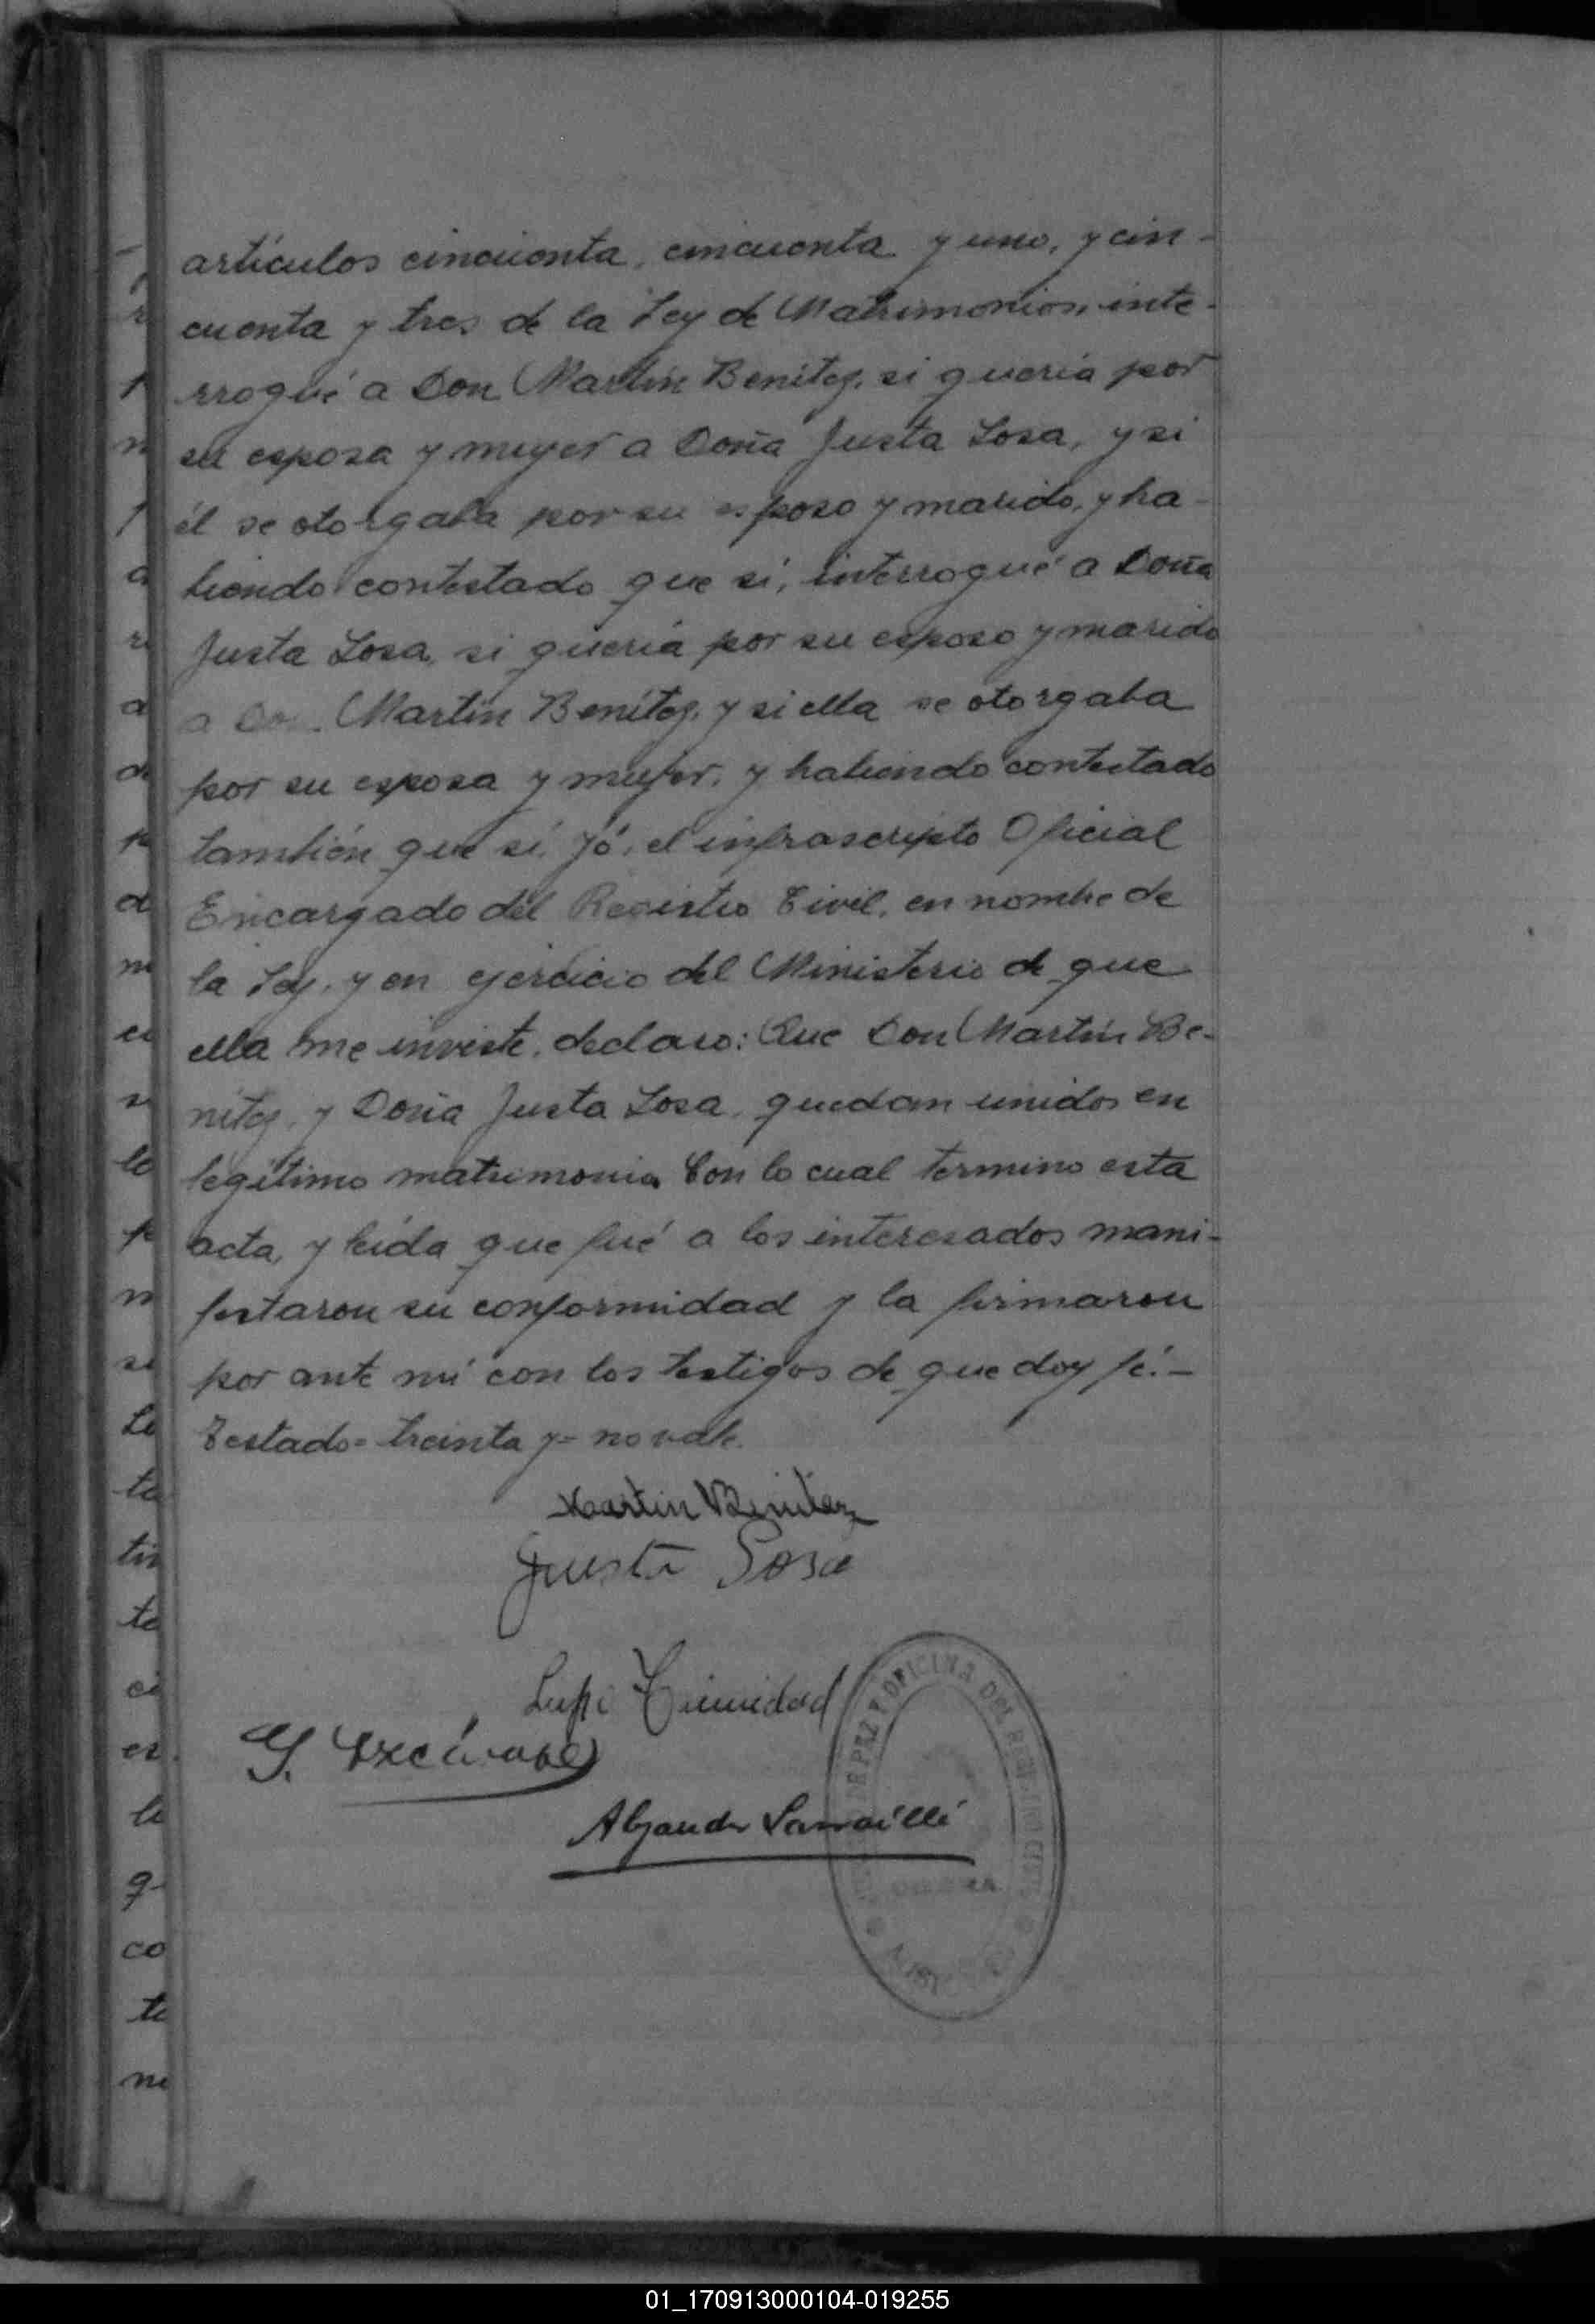 artículos cincuenta, cincuenta y uno, y cin-
cuenta y tres de la Ley de Matrimonios, inte-
rrogué a Don Martín Benítez, si quería por
su esposa y mujer a Doña Justa Sosa, y si
él se otorgaba por su esposo y marido, y ha-
biendo contestado que sí, interrogué a Doña
Justa Sosa, si quería por su esposo y marido
a Don Martín Benítez, y si ella se otorgaba
por su esposa y mujer, y habiendo contestado
también que sí, yó, el infrascripto Oficial
Encargado del Registro Civil, en nombre de
la Ley, y en ejercicio del Ministerio de que
ella me inviste, declaro: Que Don Martín Be-
nítez, y Doña Justa Sosa, quedan unidos en
legítimo matrimonio. Con lo cual termino esta
acta, y leída que fué a los interesados mani-
festaron su conformidad y la firmaron
por ante mí con los testigos de que doy fé.-
Testado= treinta y= no vale.
Martin Benitez
Justa Sosa
Lupi Trinidad
G.
DE PAZ Y OFICINA DEL
01_170913000104-019255